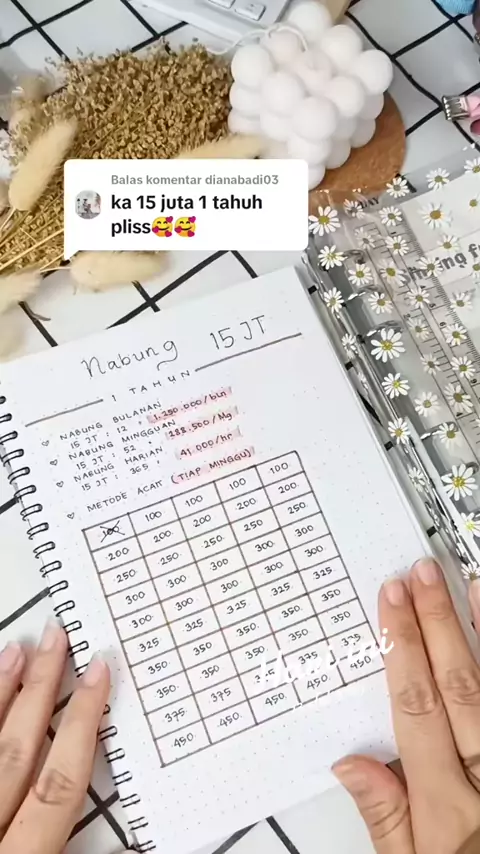 Balas komentar dianabadi03
ka 15 juta 1 tahuh
pliss🥰🥰
Nabung 15 JT
1 TAHUN
NABUNG BULANAN
15 JT : 12 = 1.250.000/bln
NABUNG MINGGUAN
15 JT : 52 = 288.500/Mg
NABUNG HARIAN
15 JT : 365 = 41.000/hr
METODE ACAK (TIAP MINGGU)
100 100 100 100 100
200 200 200 200 200
250 250 250 250 250
300 300 300 300 300
300 300 300 300 300
325 325 325 325 325
350 350 350 350 350
350 350 350 350 350
375 375 375 375
450 450 450 450 450